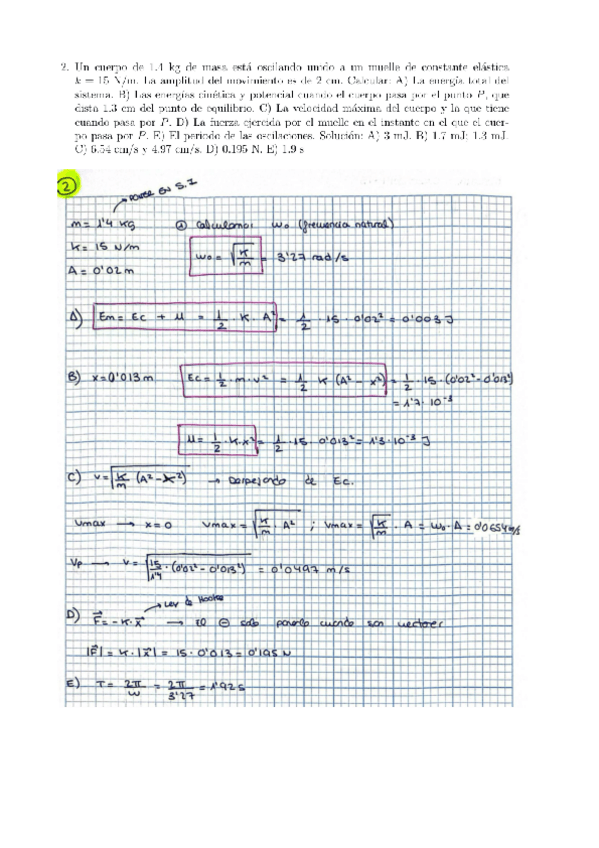 2. Un cuerpo de 1.4 kg de masa está oscilando unido a un muelle de constante elástica
k = 15 N/m. La amplitud del movimiento es de 2 cm. Calcular: A) La energía total del
sistema. B) Las energías cinética y potencial cuando el cuerpo pasa por el punto P, que
dista 1.3 cm del punto de equilibrio. C) La velocidad máxima del cuerpo y la que tiene
cuando pasa por P. D) La fuerza ejercida por el muelle en el instante en el que el cuer-
po pasa por P. E) El periodo de las oscilaciones. Solución: A) 3 mJ. B) 1.7 mJ; 1.3 mJ.
C) 6.54 cm/s y 4.97 cm/s. D) 0.195 N. E) 1.9 s
2
→ PONER EN S.I
m = 1'4 kg ① Calculamos ω₀ (frecuencia natural)
K = 15 N/m
ω₀ = √(K/m) = 3'27 rad/s
A = 0'02 m
A) Em = Ec + U = 1/2 · K · A² = 1/2 · 15 · 0'02² = 0'003 J
B) x = 0'013 m Ec = 1/2 · m · v² = 1/2 K (A² - x²) = 1/2 · 15 · (0'02² - 0'013²)
= 1'7 · 10⁻³
U = 1/2 · K · x² = 1/2 · 15 · 0'013² = 1'3 · 10⁻³ J
C) v = √(K/m (A² - x²)) → Despejando de Ec.
Vmax → x = 0 Vmax = √(K/m · A²) ; Vmax = √(K/m) · A = ω₀ · A = 0'0654 m/s
Vp → v = √(15/1'4 · (0'02² - 0'013²)) = 0'0497 m/s
→ Ley de Hooke
D) F⃗ = - K · x⃗ → El ⊖ solo ponerlo cuando son vectores
|F⃗| = K · |x⃗| = 15 · 0'013 = 0'195 N
E) T = 2π/ω = 2π/3'27 = 1'92 s